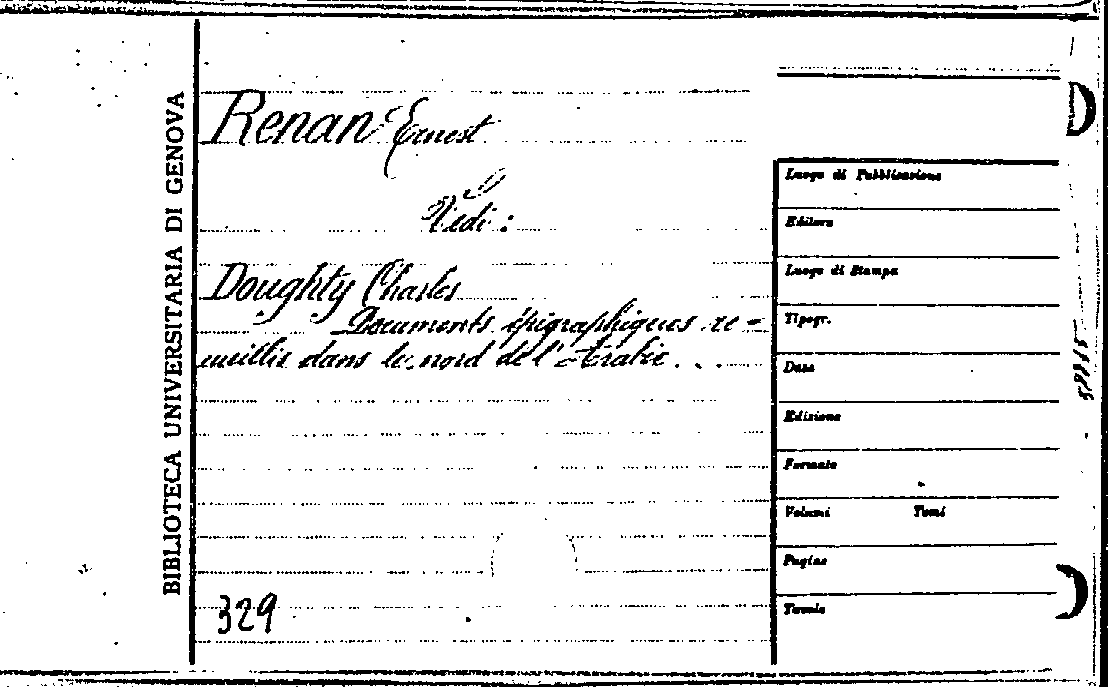 BIBLIOTECA UNIVERSITARIA DI GENOVA
Renan Ernest
Vedi:
Doughty Charles
Documents épigraphiques re=
cueillis dans le nord de l'Arabie...
329
Luogo di Pubblicazione
Editore
Luogo di Stampa
Tipogr.
Data
Edizione
Formato
Volumi Tomi
Pagine
Tavole